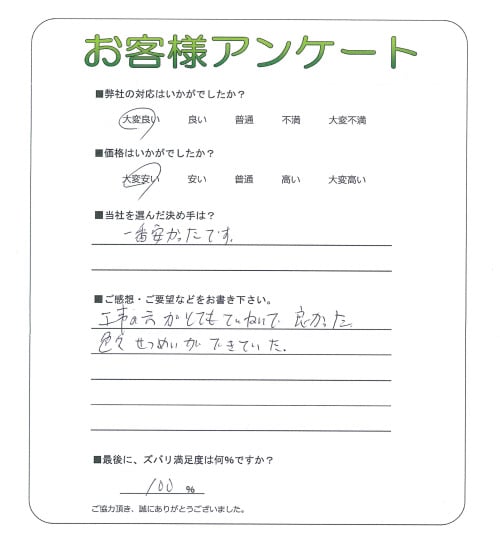 お客様アンケート
■弊社の対応はいかがでしたか？
大変良い 良い 普通 不満 大変不満
■価格はいかがでしたか？
大変安い 安い 普通 高い 大変高い
■当社を選んだ決め手は？
一番安かったです。
■ご感想・ご要望などをお書き下さい。
工事の方がとてもていねいで良かった。
色々せつめいができていた。
■最後に、ズバリ満足度は何%ですか？
100 %
ご協力頂き、誠にありがとうございました。